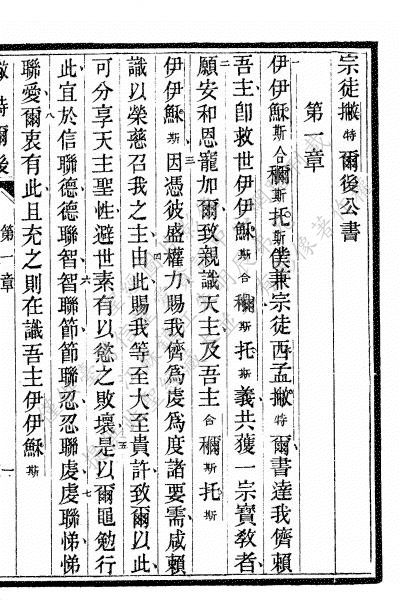 宗徒撇特爾後公書
第一章
伊伊穌斯合穪斯托斯僕兼宗徒西孟撇特爾書達我儕賴
吾主卽救世伊伊穌斯合穪斯托斯義共獲一宗寳敎者
願安和恩寵加爾致親識天主及吾主合穪斯托斯
伊伊穌斯因憑彼盛權力賜我儕爲虔爲度諸要需咸賴
識以榮慈召我之主由此賜我等至大至貴許致爾以此
可分享天主聖性避世素有以慾之敗壞是以爾黽勉行
此宜於信聯德德聯智智聯節節聯忍忍聯虔虔聯悌悌
聯愛爾衷有此且充之則在識吾主伊伊穌斯
特爾後
第一章
一